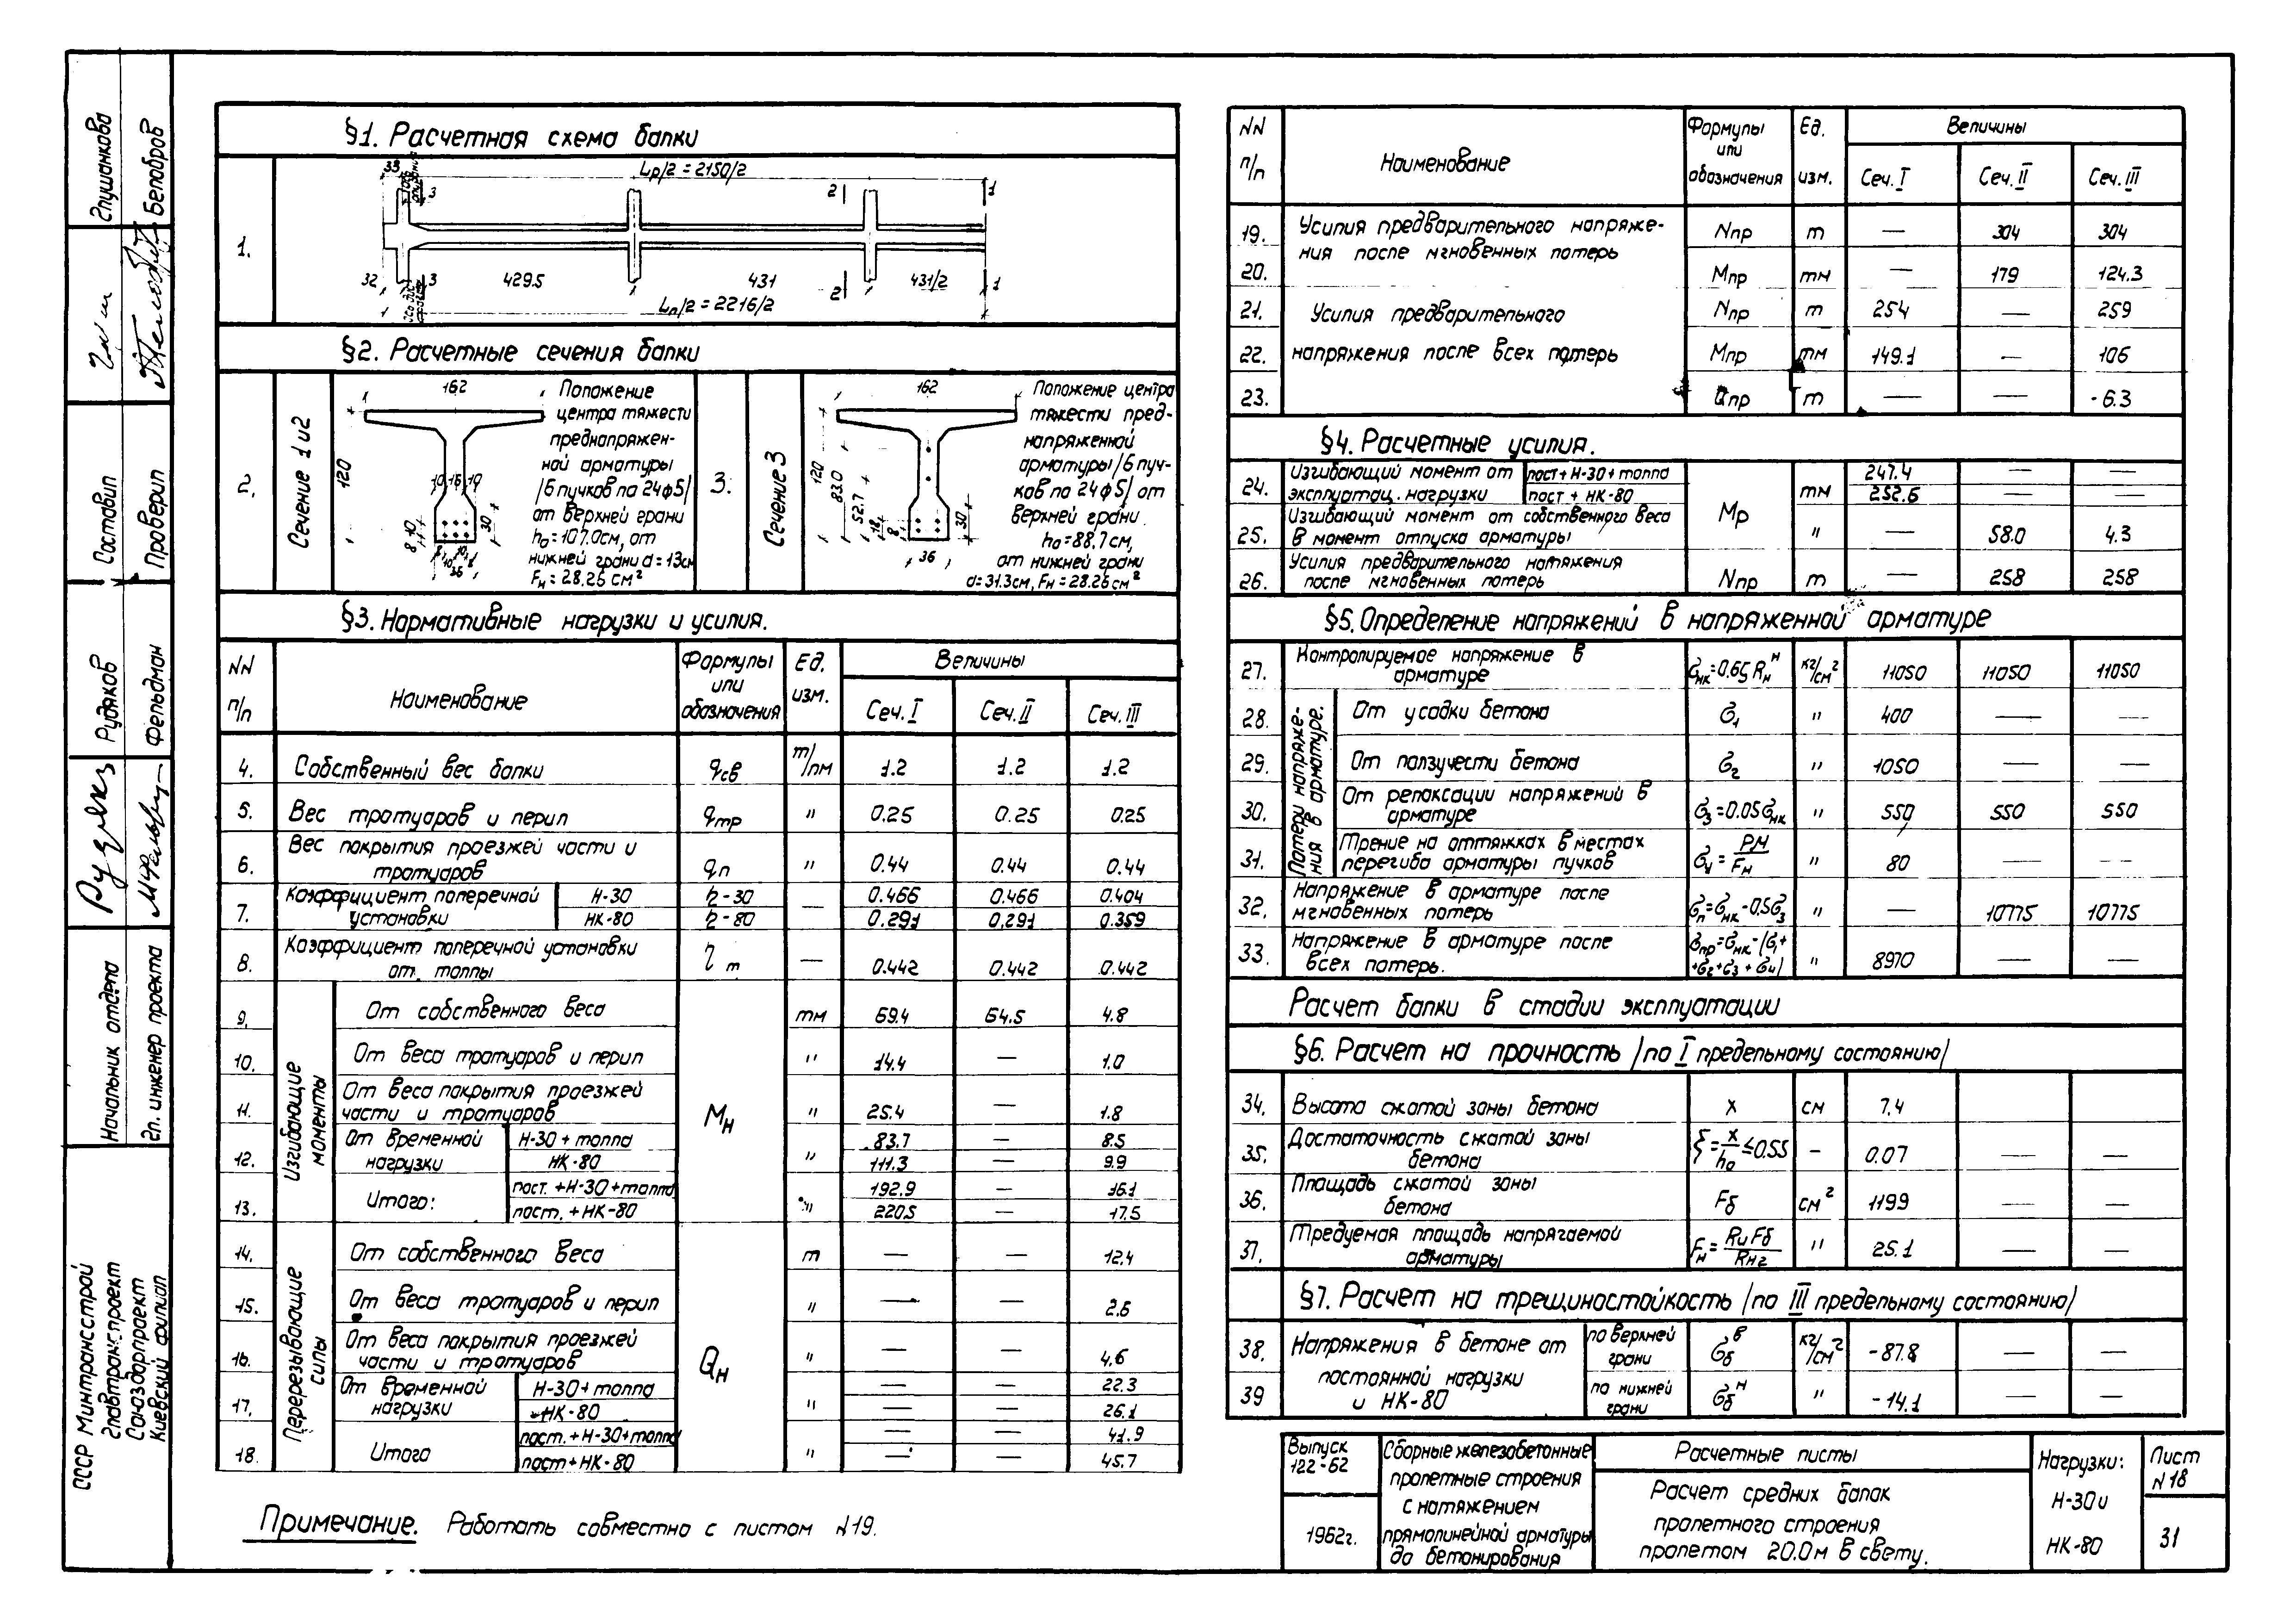 §1. Расчетная схема балки
1.
33
Lp/2 = 2150/2
3
2
1
32
3
429.5
431
2
431/2
1
Lп/2 = 2216/2
§2. Расчетные сечения балки
2.
Сечение 1 и 2
162
120
10 16 10
8 10
30
36
Положение
центра тяжести
преднапряжен-
ной арматуры
/6 пучков по 24φ5/
от верхней грани
h₀=107.0см, от
нижней грани а=13см
Fн=28.26 см²
3.
Сечение 3
162
120
83.0
52.7
12
8
30
36
Положение центра
тяжести пред-
напряженной
арматуры /6 пуч-
ков по 24φ5/ от
верхней грани
h₀=88.7см,
от нижней грани
а=31.3см, Fн=28.26 см²
§3. Нормативные нагрузки и усилия.
NN п/п | Наименование | Формулы или обозначения | Ед. изм. | Величины
Сеч. I | Сеч. II | Сеч. III
4. Собственный вес балки qсв т/пм 1.2 1.2 1.2
5. Вес тротуаров и перил qтр " 0.25 0.25 0.25
6. Вес покрытия проезжей части и тротуаров qп " 0.44 0.44 0.44
7. Коэффициент поперечной установки Н-30 η-30 — 0.466 0.466 0.404
НК-80 η-80 0.291 0.291 0.359
8. Коэффициент поперечной установки от толпы η т — 0.442 0.442 0.442
Изгибающие моменты
Mн
9. От собственного веса тм 69.4 64.5 4.8
10. От веса тротуаров и перил " 14.4 — 1.0
11. От веса покрытия проезжей части и тротуаров " 25.4 — 1.8
12. От временной нагрузки Н-30 + толпа " 83.7 — 8.5
НК-80 111.3 — 9.9
13. Итого: пост. + Н-30 + толпа " 192.9 — 16.1
пост. + НК-80 220.5 — 17.5
Перерезывающие силы
Qн
14. От собственного веса т — — 12.4
15. От веса тротуаров и перил " — — 2.6
16. От веса покрытия проезжей части и тротуаров " — — 4.6
17. От временной нагрузки Н-30 + толпа " — — 22.3
НК-80 — — 26.1
18. Итого пост. + Н-30 + толпа " — — 41.9
пост + НК-80 — — 45.7
Примечание. Работать совместно с листом N19.
NN п/п | Наименование | Формулы или обозначения | Ед. изм. | Величины
Сеч. I | Сеч. II | Сеч. III
19. Усилия предварительного напряже- Nпр т — 304 304
20. ния после мгновенных потерь Mпр тм — 179 124.3
21. Усилия предварительного Nпр т 254 — 259
22. напряжения после всех потерь Mпр тм 149.1 — 106
23. Qпр т — — -6.3
§4. Расчетные усилия.
24. Изгибающий момент от эксплуатац. нагрузки пост + Н-30 + толпа Mр тм 247.4 — —
пост + НК-80 252.6 — —
25. Изгибающий момент от собственного веса в момент отпуска арматуры " — 58.0 4.3
26. Усилия предварительного натяжения после мгновенных потерь Nпр т — 258 258
§5. Определение напряжений в напряженной арматуре
27. Контролируемое напряжение в арматуре σнк=0.65 Rнᴴ кг/см² 11050 11050 11050
Потери напряже-
ния в арматуре.
28. От усадки бетона σ₁ " 400 — —
29. От ползучести бетона σ₂ " 1050 — —
30. От релаксации напряжений в арматуре σ₃=0.05σнк " 550 550 550
31. Трение на оттяжках в местах перегиба арматуры пучков σ₄ = РМ/Fн " 80 — —
32. Напряжение в арматуре после мгновенных потерь σп=σнк-0.5σ₃ " — 10775 10775
33. Напряжение в арматуре после всех потерь. σпр=σнк-/σ₁+ +σ₂+σ₃+σ₄/ " 8970 — —
Расчет балки в стадии эксплуатации
§6. Расчет на прочность /по I предельному состоянию/
34. Высота сжатой зоны бетона x см 7.4
35. Достаточность сжатой зоны бетона ξ=x/h₀≤0.55 — 0.07 — —
36. Площадь сжатой зоны бетона Fб см² 1199 — —
37. Требуемая площадь напрягаемой арматуры Fн=RиFб/Rн2 " 25.1 — —
§7. Расчет на трещиностойкость /по III предельному состоянию/
38. Напряжения в бетоне от по верхней грани σбᵇ кг/см² -87.8 — —
39 постоянной нагрузки и НК-80 по нижней грани σбᴴ " -14.1 — —
Выпуск
122-62
1962г.
Сборные железобетонные
пролетные строения
с натяжением
прямолинейной арматуры
до бетонирования
Расчетные листы
Расчет средних балок
пролетного строения
пролетом 20.0м в свету.
Нагрузки:
Н-30 и
НК-80
Лист
N18
31
Глушанкова
Белобров
Составил
Проверил
Рудяков
Фельдман
Начальник отдела
Гл. инженер проекта
СССР Минтрансстрой
Главтранспроект
Союздорпроект
Киевский филиал